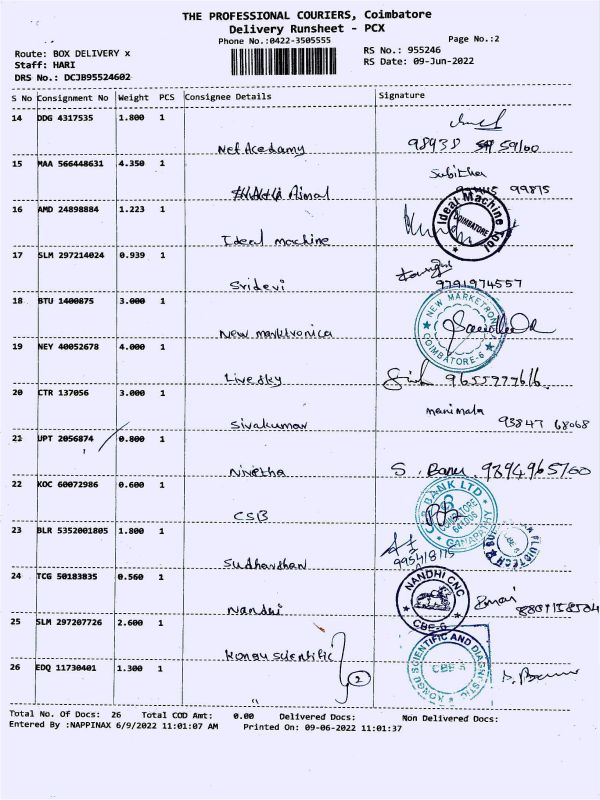 THE PROFESSIONAL COURIERS, Coimbatore
Delivery Runsheet - PCX
Phone No.:0422-3505555
Page No.:2
Route: BOX DELIVERY x
RS No.: 955246
Staff: HARI
RS Date: 09-Jun-2022
DRS No.: DCJB95524602
S No Consignment No Weight PCS Consignee Details Signature
14 DDG 4317535 1.800 1
Net Acedamy
15 MAA 566448631 4.350 1
Subitha
Ajmal
99815
16 AMD 24898884 1.223 1
Ideal machine
Ideal Machine Tool
COIMBATORE
17 SLM 297214024 0.939 1
Sridevi 9791974557
18 BTU 1400875 3.000 1
New marktronica
NEW MARKETRONI
COIMBATORE-6
19 NEY 40052678 4.000 1
Livesky 9655777616
20 CTR 137056 3.000 1
manimala
Sivakumar 93847 68068
21 UPT 2056874 0.800 1
Nivetha S. Banu
22 KOC 60072986 0.600 1
CSB
BANK LTD
COIMBATORE
641006
GANAPATHY
23 BLR 5352001805 1.800 1
Sudharshan
24 TCG 50183835 0.560 1
Nandhi
NANDHI CNC
CBE-6
25 SLM 297207726 2.600 1
Kongu scientific
KONGU SCIENTIFIC AND DIAGNOSTIC
CBE-6
26 EDQ 11730401 1.300 1
"
2
Total No. Of Docs: 26 Total COD Amt: 0.00 Delivered Docs: Non Delivered Docs:
Entered By :NAPPINAX 6/9/2022 11:01:07 AM Printed On: 09-06-2022 11:01:37